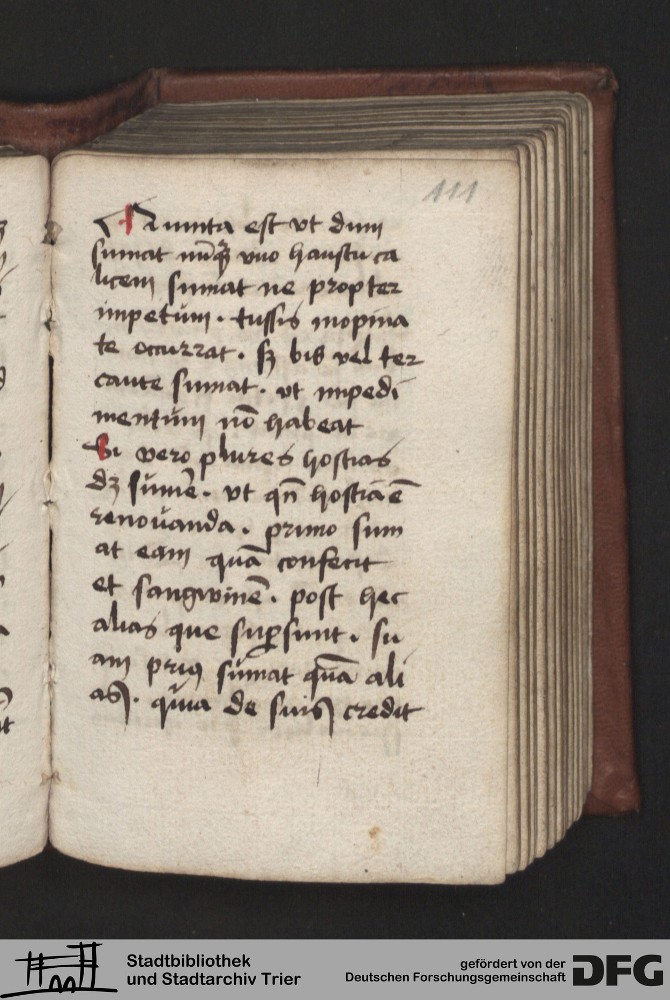 111
Quinta est vt dum
sumat nūq̄ vno haustu ca
licem sumat ne propter
impetum. tussis inopina
te occurrat. sꝫ bis vel ter
caute sumat. vt impedi
mentum nō habeat
Si vero plures hostias
dꝫ sumē̄. vt qn̄ hostia ē
renouanda. primo sum
at eam quā confecit
et sangwinē. post hec
alias que suꝑsunt. su
am priꝰ sumat quā ali
as. quia de suis credit
Stadtbibliothek
und Stadtarchiv Trier
gefördert von der
Deutschen Forschungsgemeinschaft
DFG